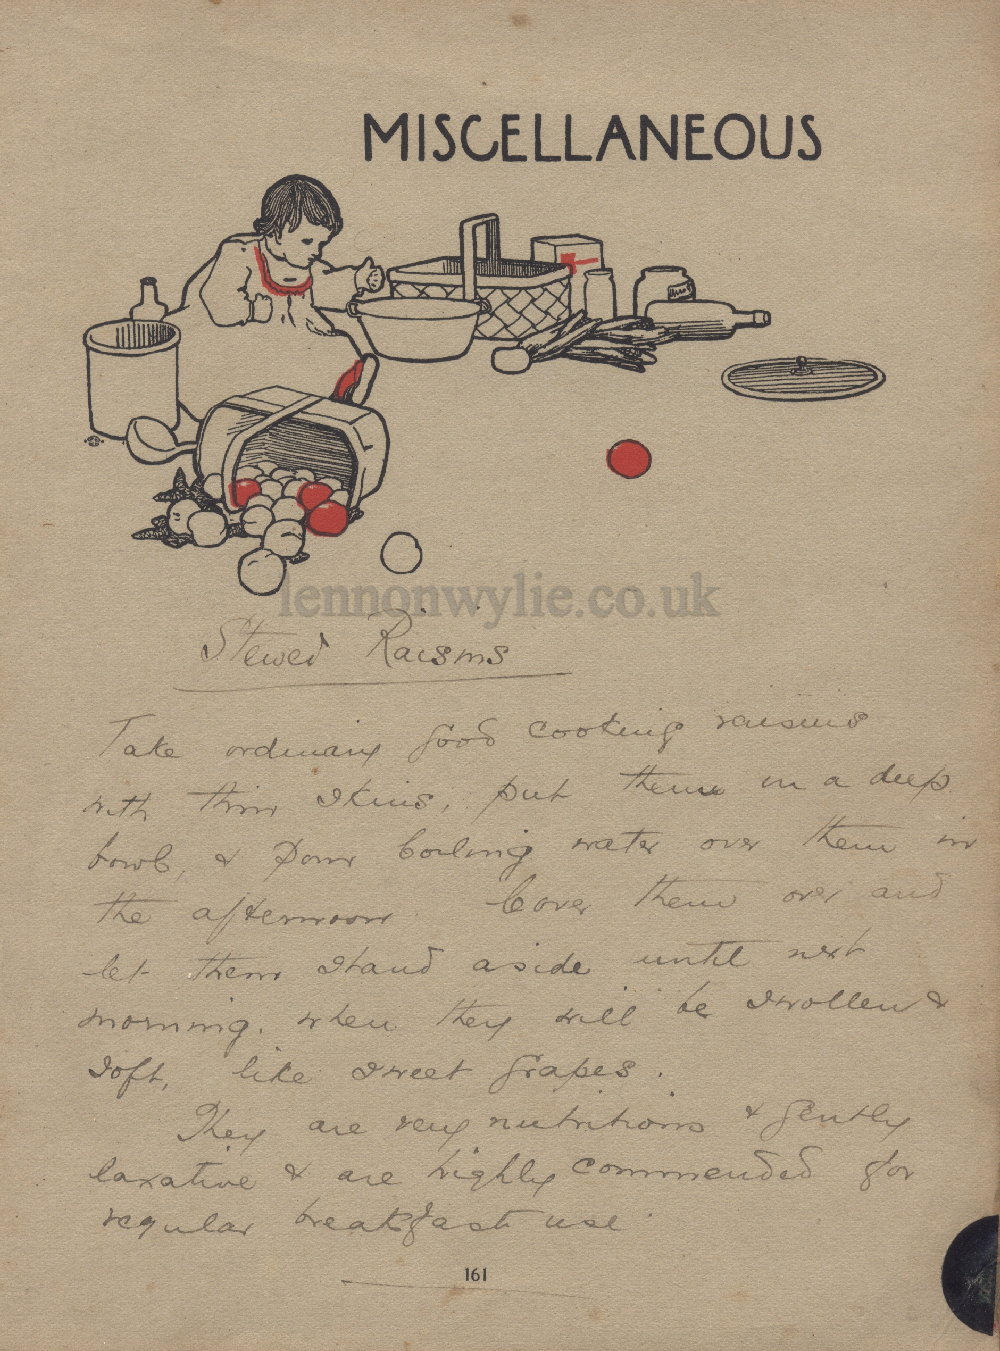 MISCELLANEOUS
lennonwylie.co.uk
Stewed Raisins
Take ordinary good cooking raisins
with thin skins, put them in a deep
bowl, & pour boiling water over them in
the afternoon. Cover them over and
let them stand aside until next
morning. when they will be swollen &
soft, like sweet grapes.
They are very nutritious & gently
laxative & are highly commended for
regular breakfast use.
161